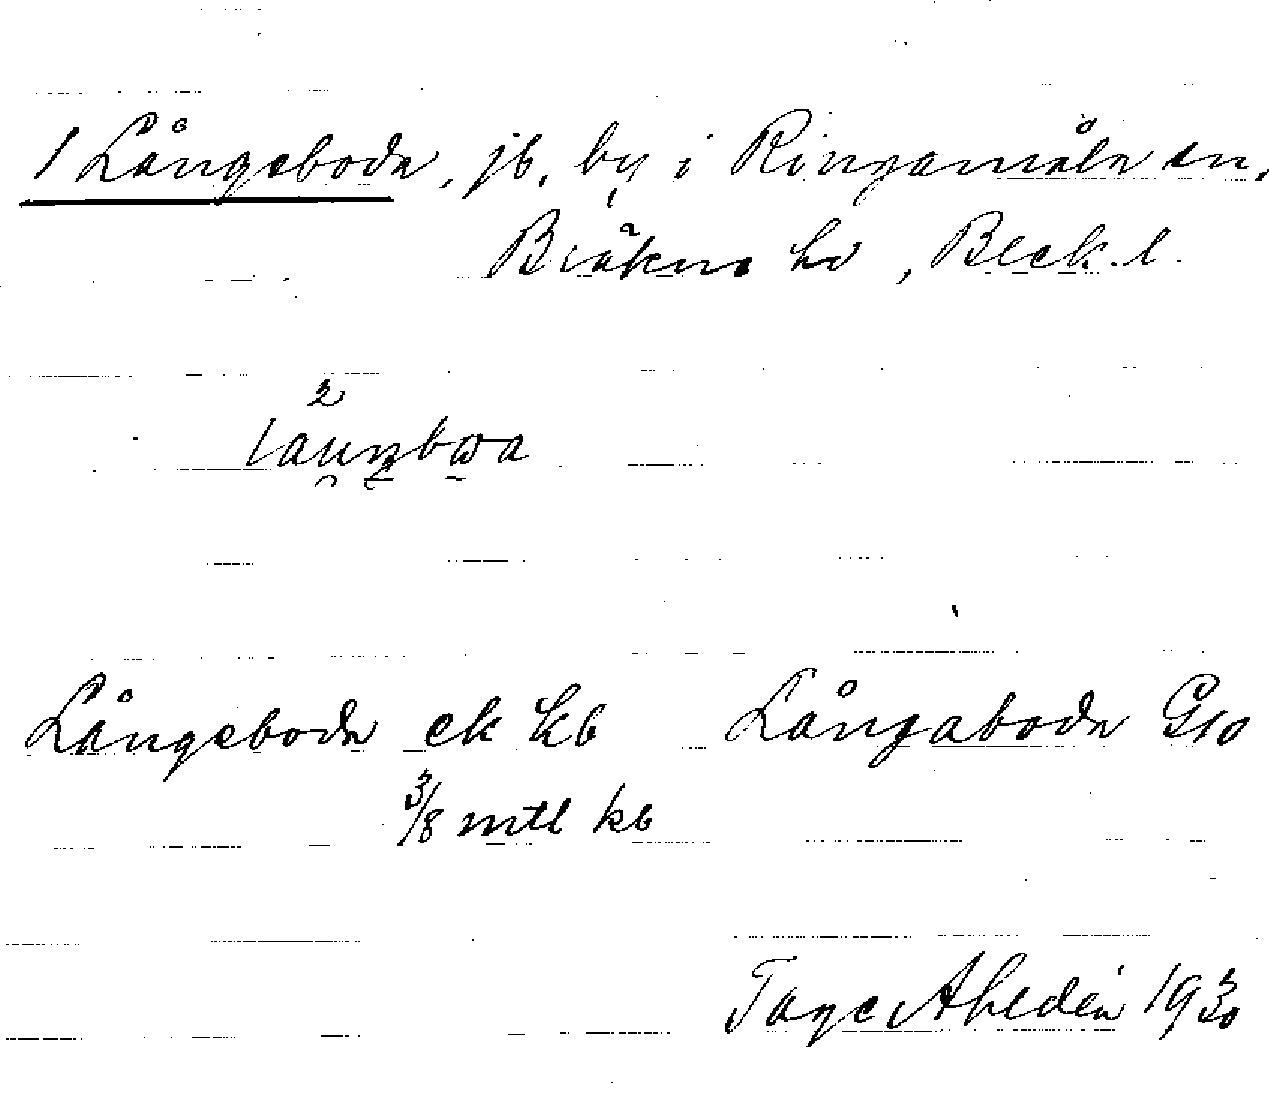 1 Långeboda, jb. by i Ringamåla sn,
Bräkne hd, Blek. l.
Långeboda ek kb Långaboda GSo
3/8 mtl kb
Tage Ahldén 1930